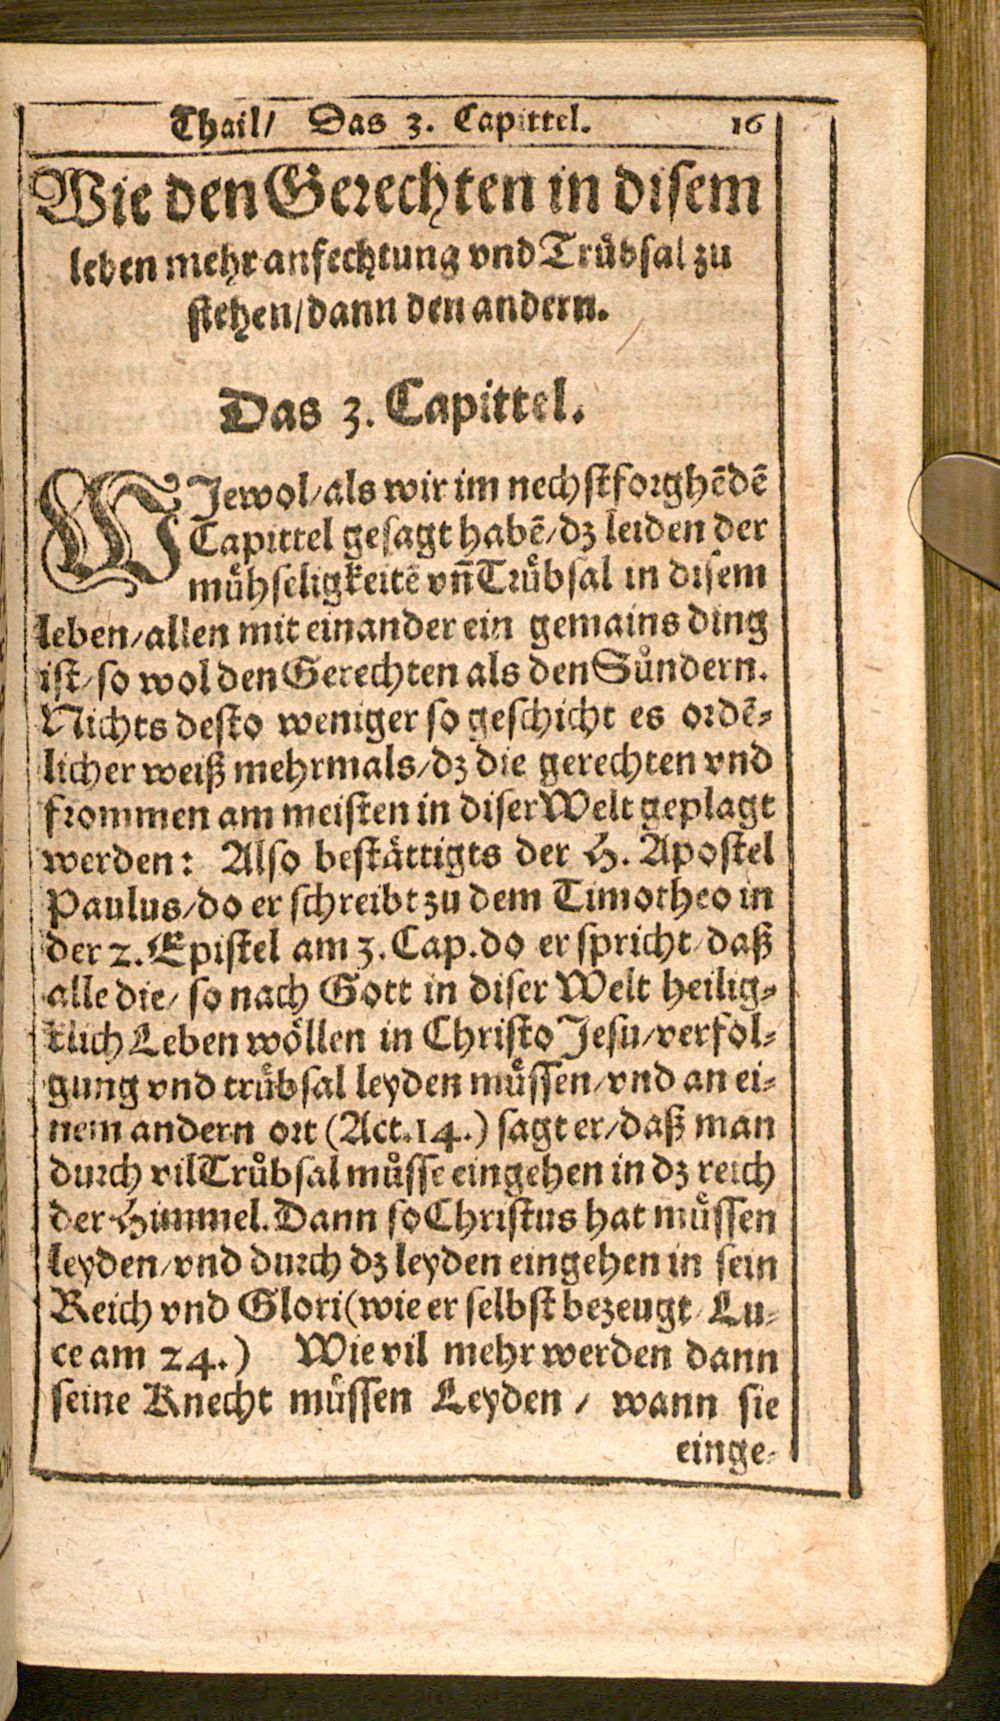 Thail/ Das 3. Capittel. 16
Wie den Gerechten in disem
leben mehr anfechtung vnd Trůbsal zu
stehen/dann den andern.
Das 3. Capittel.
WJewol/als wir im nechstforghēdē
Capittel gesagt habē/dz leiden der
můhseligkeitē vn̄ Trůbsal in disem
leben/allen mit einander ein gemains ding
ist/so wol den Gerechten als den Sůndern.
Nichts desto weniger so geschicht es ordē-
licher weiß mehrmals/dz die gerechten vnd
frommen am meisten in diser Welt geplagt
werden: Also bestättigts der H. Apostel
Paulus/do er schreibt zu dem Timotheo in
der 2. Epistel am 3. Cap. do er spricht/daß
alle die/ so nach Gott in diser Welt heilig-
klich Leben wöllen in Christo Jesu/verfol-
gung vnd trůbsal leyden můssen/vnd an ei-
nem andern ort (Act.14.) sagt er/daß man
durch vil Trůbsal můsse eingehen in dz reich
der Himmel. Dann so Christus hat můssen
leyden/vnd durch dz leyden eingehen in sein
Reich vnd Glori(wie er selbst bezeugt/Lu-
ce am 24.) Wie vil mehr werden dann
seine Knecht můssen Leyden / wann sie
einge-